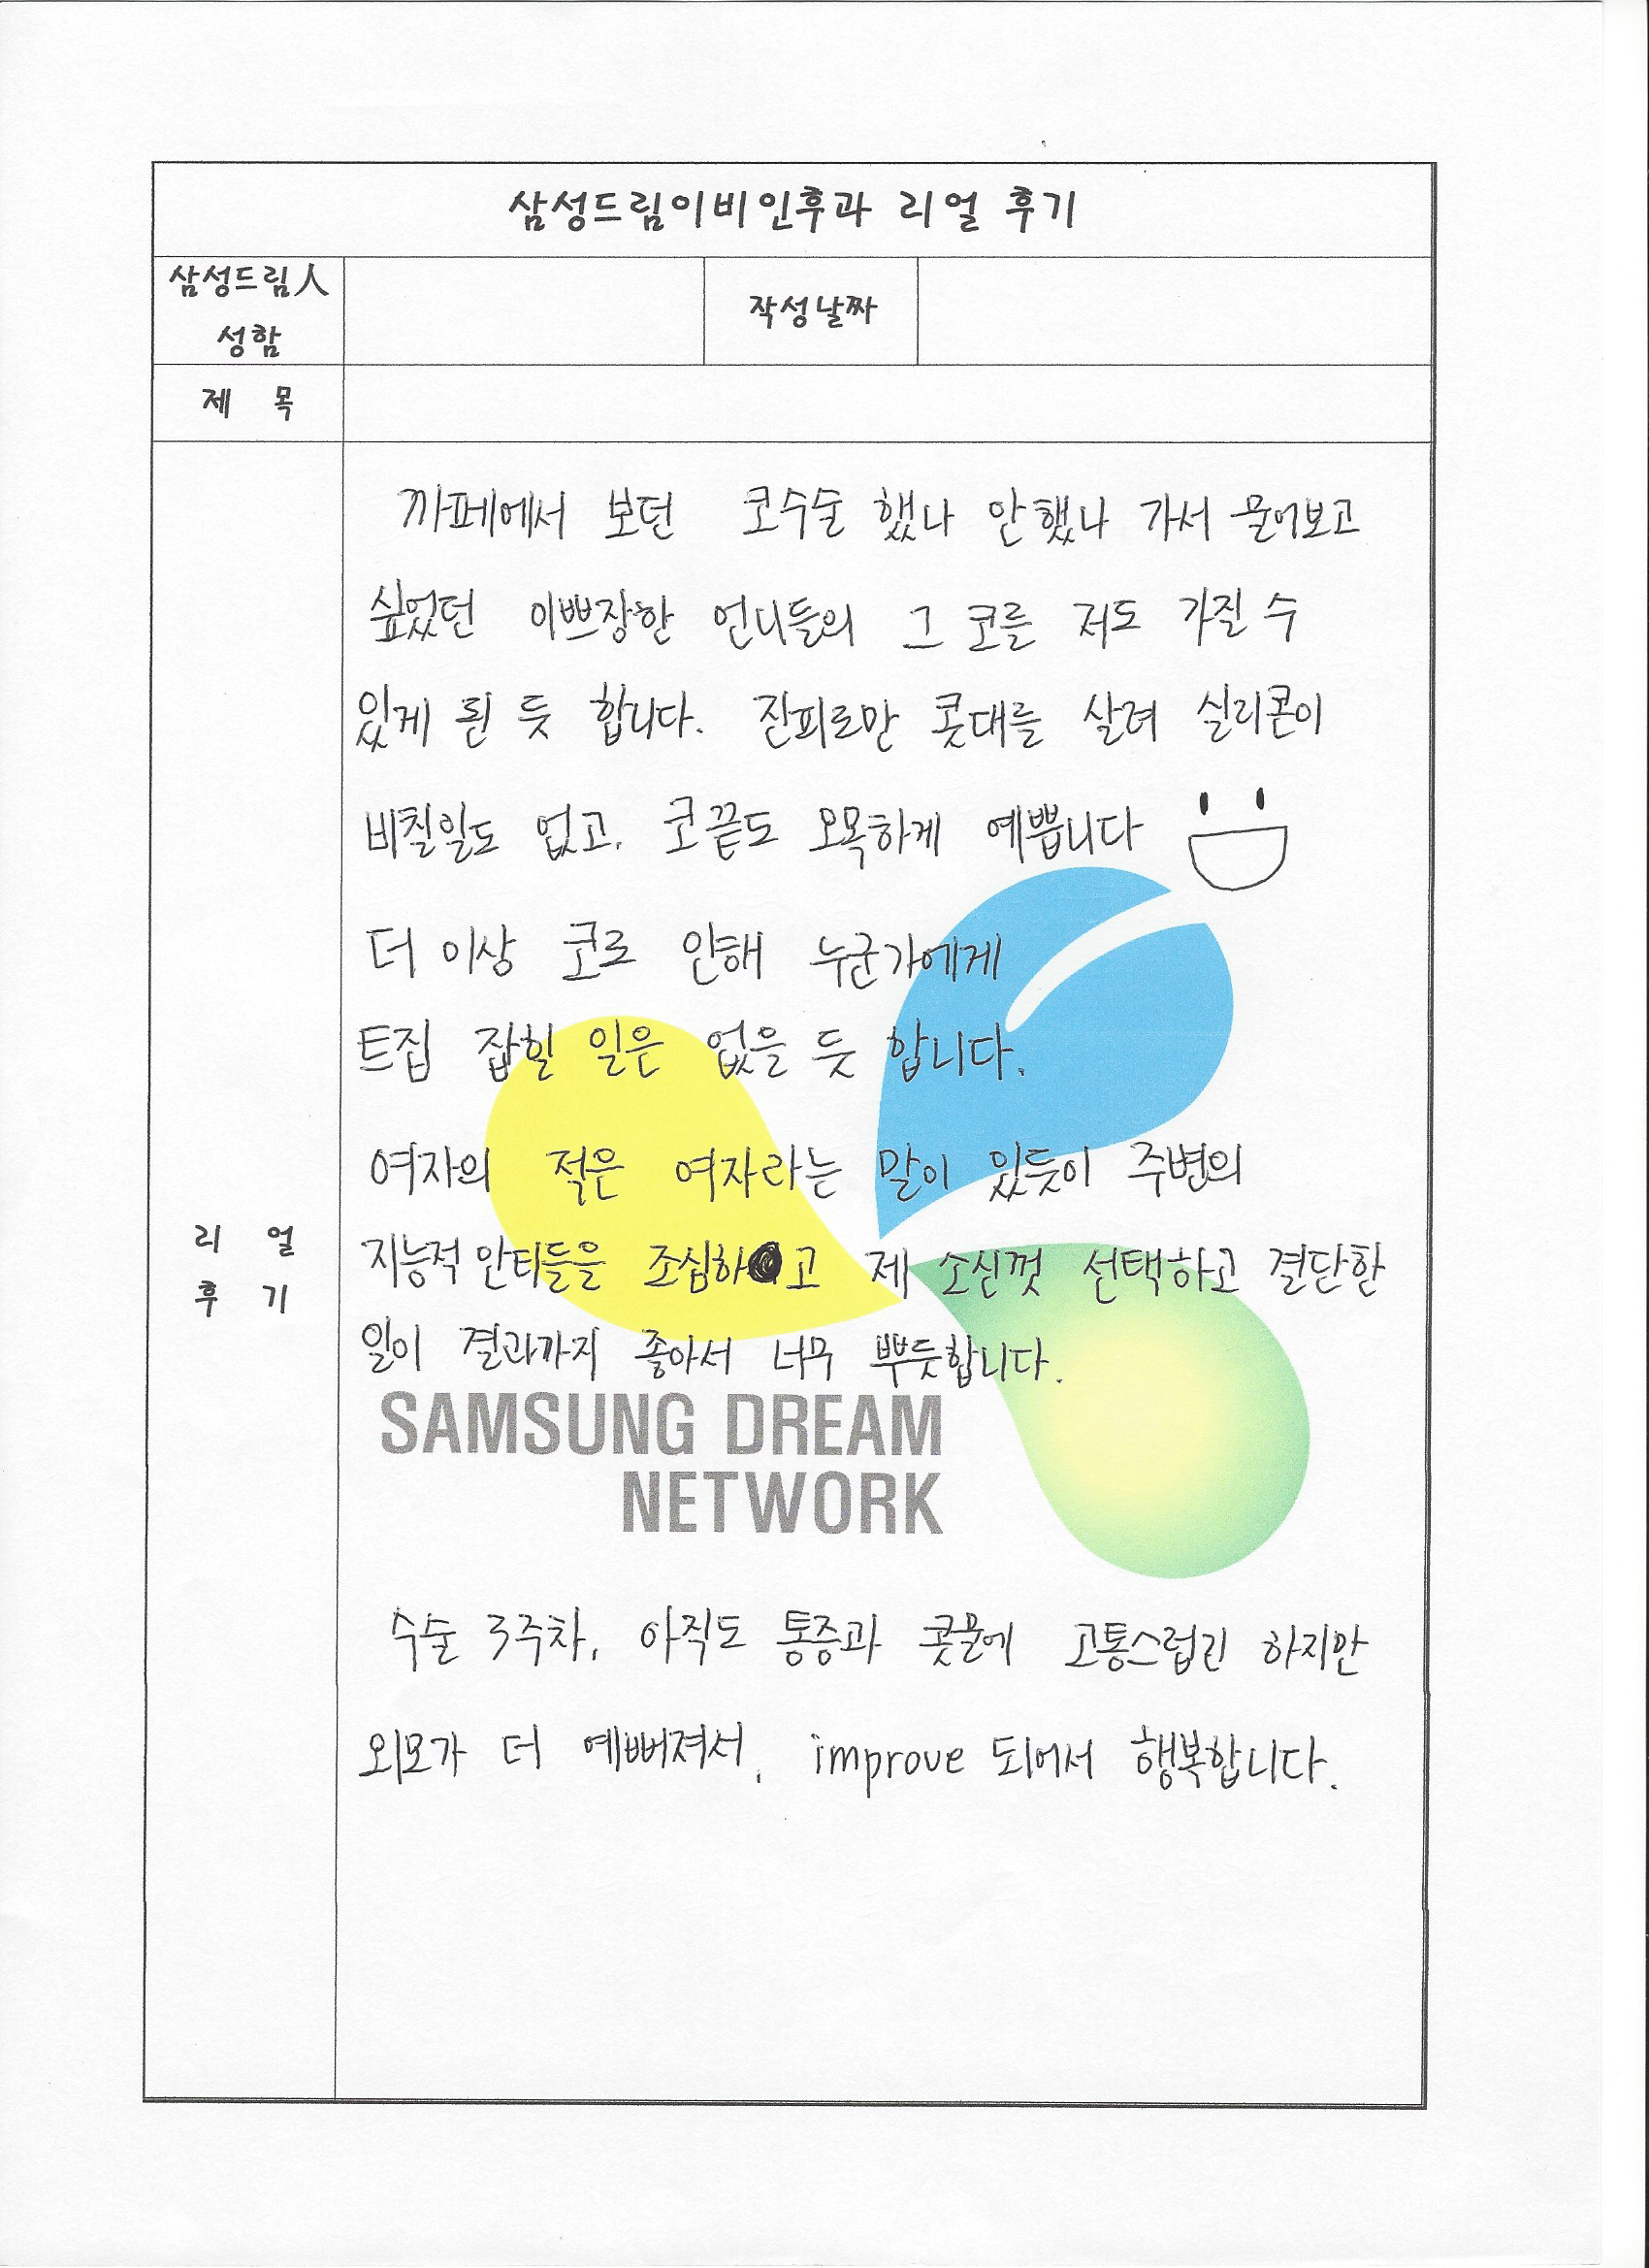 삼성드림이비인후과 리얼 후기
삼성드림人
성함
작성날짜
제 목
까페에서 보던 코수술 했나 안했나 가서 물어보고
싶었던 이쁘장한 언니들의 그 코를 저도 가질 수
있게 된 듯 합니다. 진피로만 콧대를 살려 실리콘이
비칠일도 없고, 코끝도 오목하게 예쁩니다
더 이상 코로 인해 누군가에게
트집 잡힐 일은 없을 듯 합니다.
여자의 적은 여자라는 말이 있듯이 주변의
리 얼
후 기
지능적 안티들을 조심하고 제 소신껏 선택하고 결단한
일이 결과까지 좋아서 너무 뿌듯합니다.
SAMSUNG DREAM
NETWORK
수술 3주차, 아직도 통증과 콧물에 고통스럽긴 하지만
외모가 더 예뻐져서, improve 되어서 행복합니다.